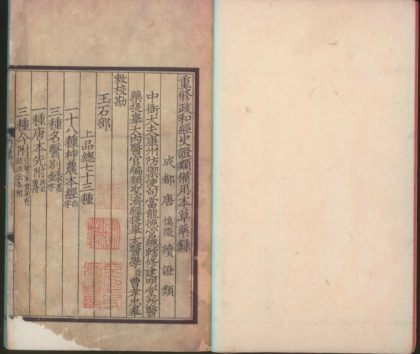 重修政和經史證類備用本草藥錄
成都唐慎微續證類
中衛大夫康州防禦使句當龍德宮總轄修建明堂所醫
藥提舉太醫官編類聖濟經提舉太醫學臣曹孝忠奉
敕校勘
玉石部
上品總七十三種
一十八種神農本經
三種名醫別錄
一種唐本先附
三種今附